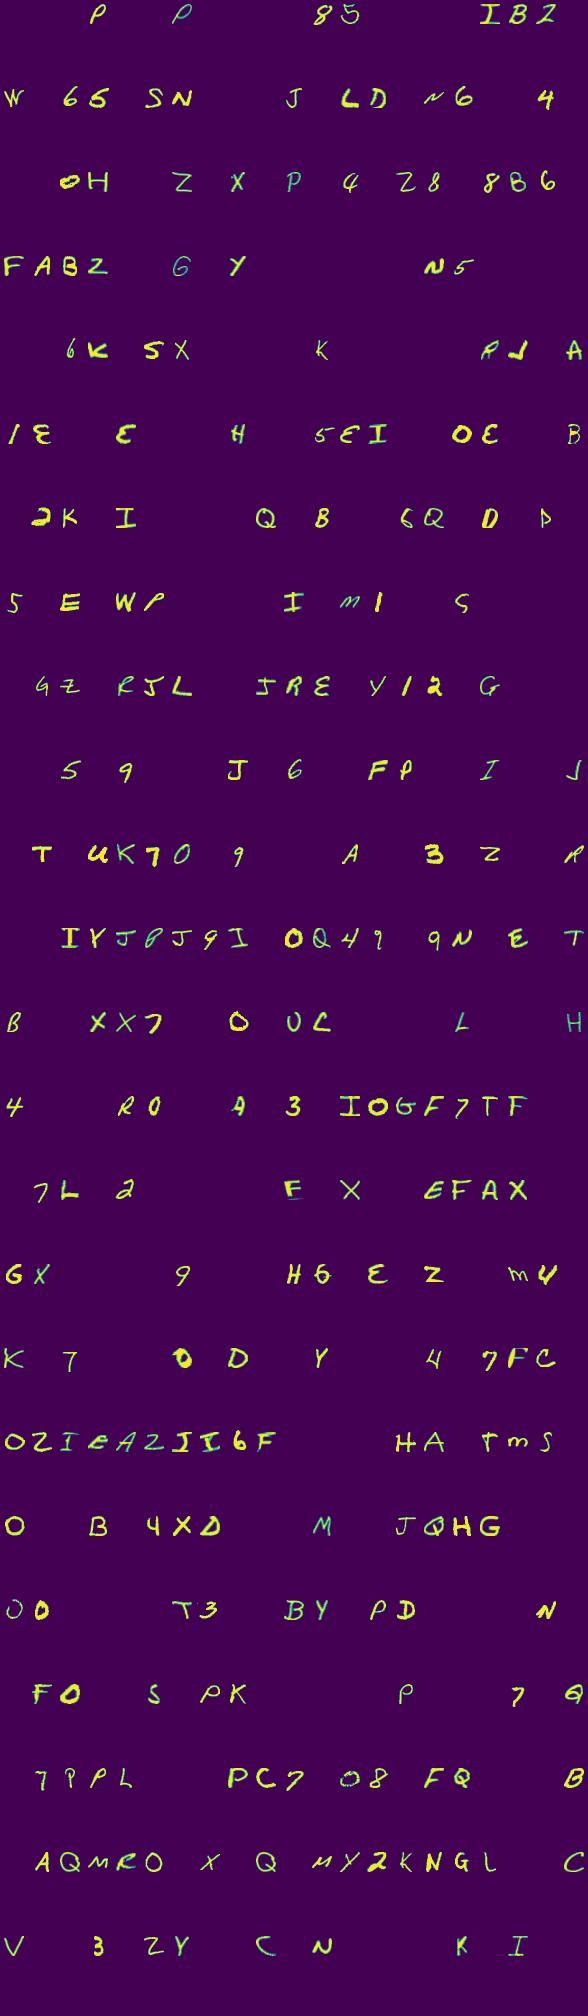 P P 85 IBZ
W 65 SN J LD N6 4
0H Z X P 4 Z8 8B6
FABZ G Y N5
6K 5X K RJ A
1E E H 5EI OE B
2K I Q B 6Q D D
5 E WP I M1 S
GZ RJL JRE Y12 G
5 9 J 6 FP I J
T UK7O 9 A 3 Z R
IYJPJ9I 0Q49 9N E T
B XX7 O UC L H
4 R0 A 3 IOGF7TF
7L 2 F X EFAX
GX 9 H6 E Z MU
K 7 0 D Y 4 7FC
OZIEAZJI6F HA TMS
O B 4XD M JQHG
O0 T3 BY PD N
FO S PK P 7 Q
7PPL PC7 08 FQ B
AQMRO X Q MY2KNGL C
V 3 ZY C N K I